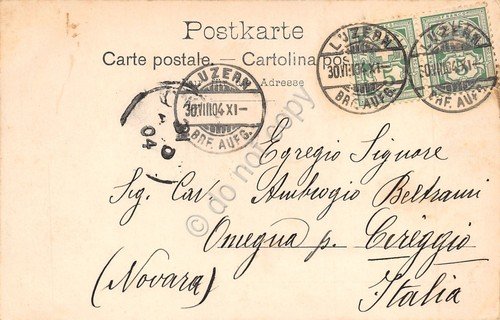 Postkarte
Carte postale. — Cartolina pos
Adresse
LUZERN
30.VIII.04.XI-
BRF.AUFG.
LUZERN
30.VIII.04.XI-
BRF.AUFG.
LUZERN
30.VIII.04.XI-
BRF.AUFG.
04
do not copy
Egregio Signore
Sig. Cav. Ambrogio Beltrami
Omegna p. Cireggio
(Novara) Italia